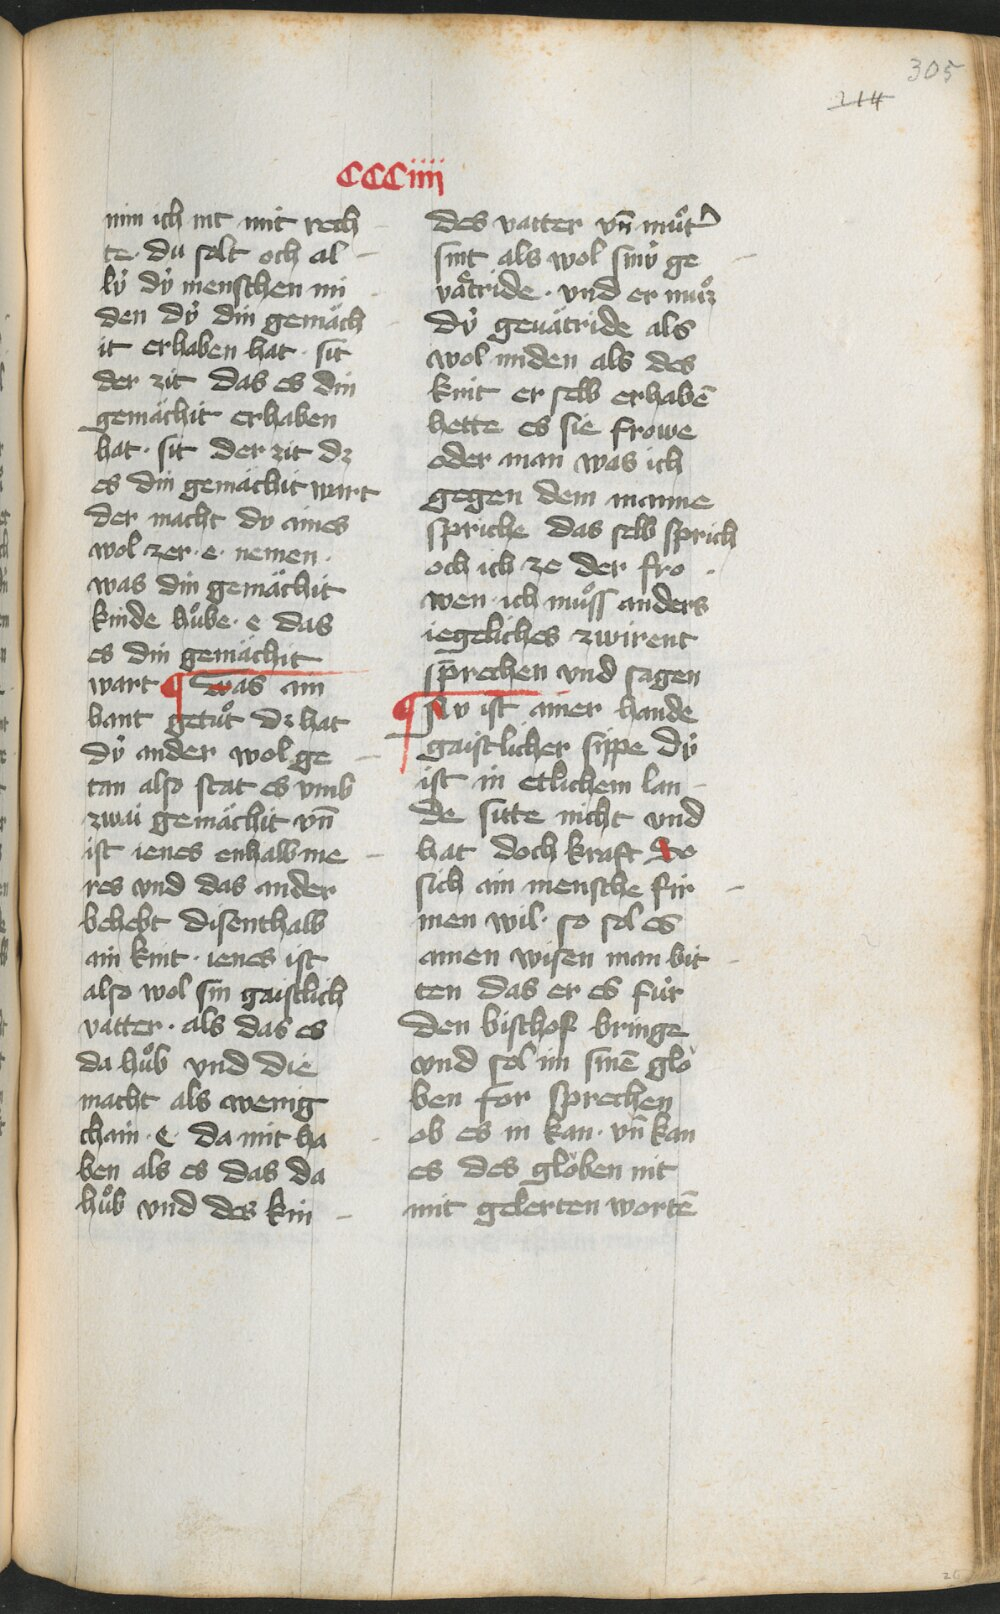 305
214
CCCiiij
nim ich nit mit rech
te. du solt och al
lv́ dv́ menschen mi
den dv́ din gemäch
it erhaben hat. sit
der zit das es din
gemächit erhaben
hat. sit der zit dz
es din gemächit wart
der macht du aines
wol zer. e. nemen.
was din gemächit
kinde hůbe. e das
es din gemächit
wart ¶ was ain
hant getůt dz hat
dv́ ander wol ge
tan also stat es vmb
zwai gemächit vn̄
ist ienes enhalb me
res vnd das ander
behebt disenthalb
ain kint. ienes ist
also wol sin gaistlich
vatter. als das es
da hůb vnd die
macht als wenig
chain. e. da mit ha
ben als es das da
hůb vnd des kin
des vatter vn̄ můt͛
sint als wol sinv́ ge
vätride. vnd er můz
dv́ geuätride als
wol miden als des
kint er selb erhabē
hette es sie frowe
oder man was ich
gegen dem manne
spriche das selb sprich
och ich ze der fro
wen. ich můss anders
iegeliches zwirent
sprechen vnd sagen
¶ Nv ist ainer hande
gaistlicher sippe dv́
ist in etlichem lan
de sitte nicht vnd
hat doch kraft So
sich ain mensche fir
men wil. so sol es
ainen wisen man bit
ten das er es fůr
den bischof bringe
vnd sol im sinē glo
ben for sprechen
ob es in kan. vn̄ kan
es des glöben nit
mit gelerten wortē